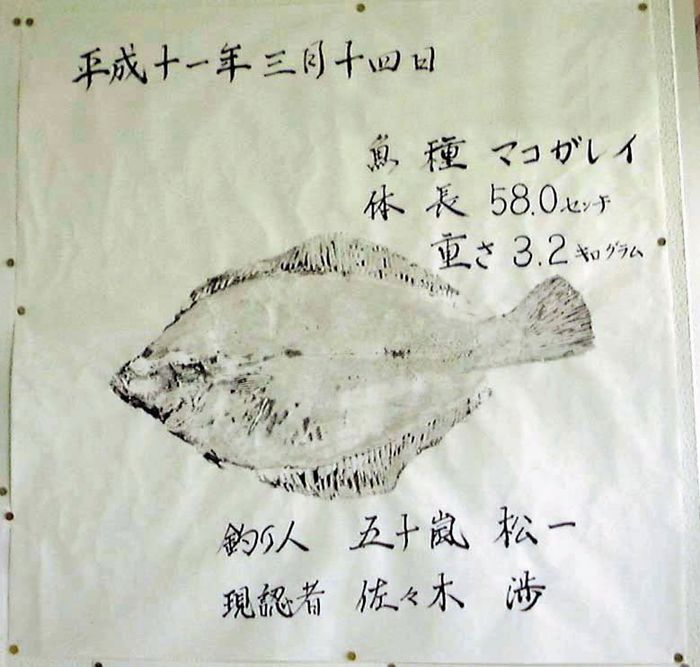 平成十一年三月十四日
魚種 マコガレイ
体長 58.0センチ
重さ 3.2キログラム
釣り人 五十嵐 松一
現認者 佐々木 渉